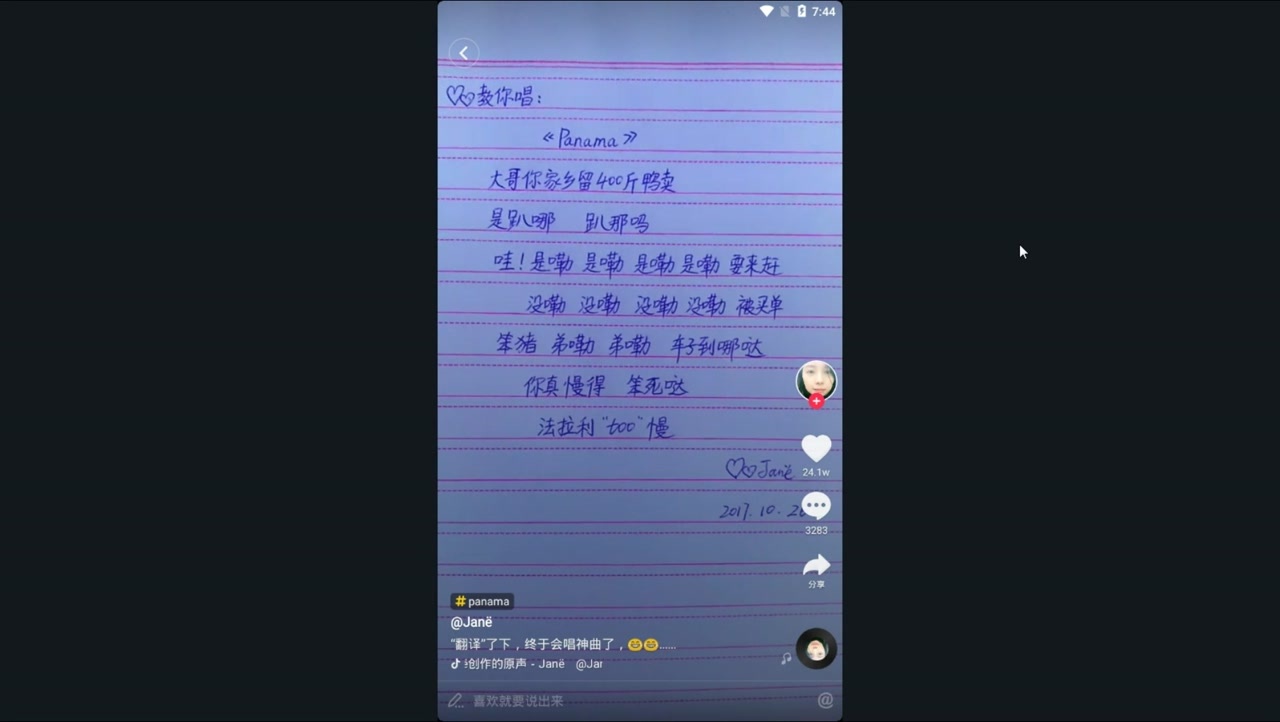 7:44
教你唱：
《Panama》
大哥你家乡留400斤鸭卖
是趴哪 趴那吗
哇！是嘞 是嘞 是嘞 是嘞 要来赶
没嘞 没嘞 没嘞 没嘞 被买单
笨猪 弟嘞 弟嘞 车子到哪哒
你真慢得 笨死哒
法拉利“too”慢
Janë
24.1w
2017.10.2
3283
分享
#panama
@Janë
“翻译”了下，终于会唱神曲了，😄😄......
创作的原声 - Janë @Jar
喜欢就要说出来
@